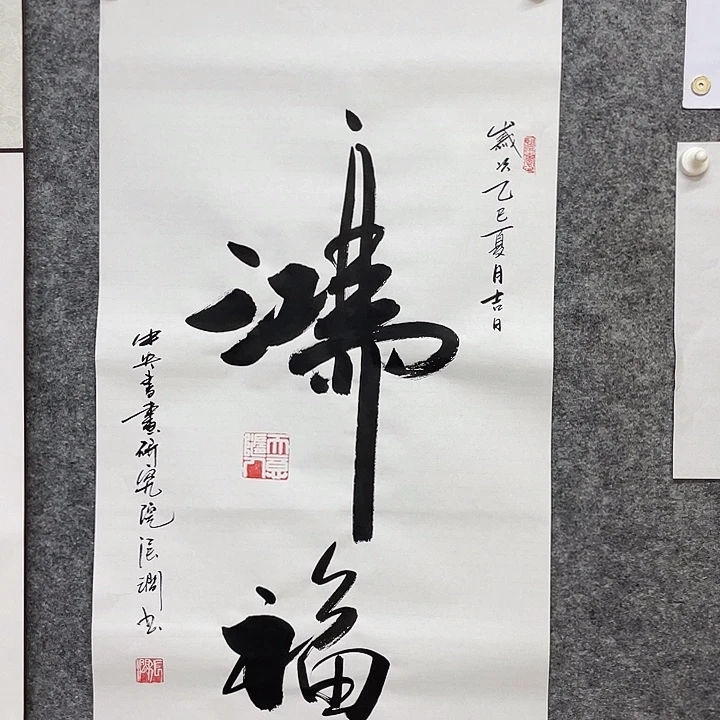 歲次乙巳夏月吉日
福
中央書畫研究院張